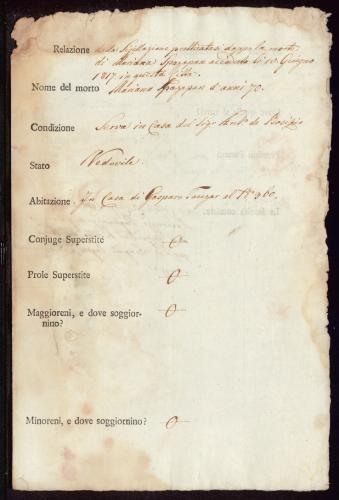 Relazione della Sigillazione praticatasi dopo la morte
di Mariana Spazapan accaduta li 10 Giugno
1817 in questa Città.
Nome del morto Mariana Spazapan d'anni 70.
Condizione Serva in Casa del Sigr. de
Stato Vedovile.
Abitazione In Casa di Gasparo al No. 360.
Conjuge Superstite 0
Prole Superstite 0
Maggioreni, e dove soggior- 0
nino?
Minoreni, e dove soggiornino? 0